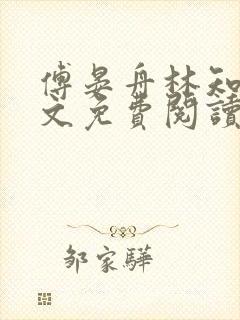 傅晏舟林知
文免費閱讀
鄒家驊